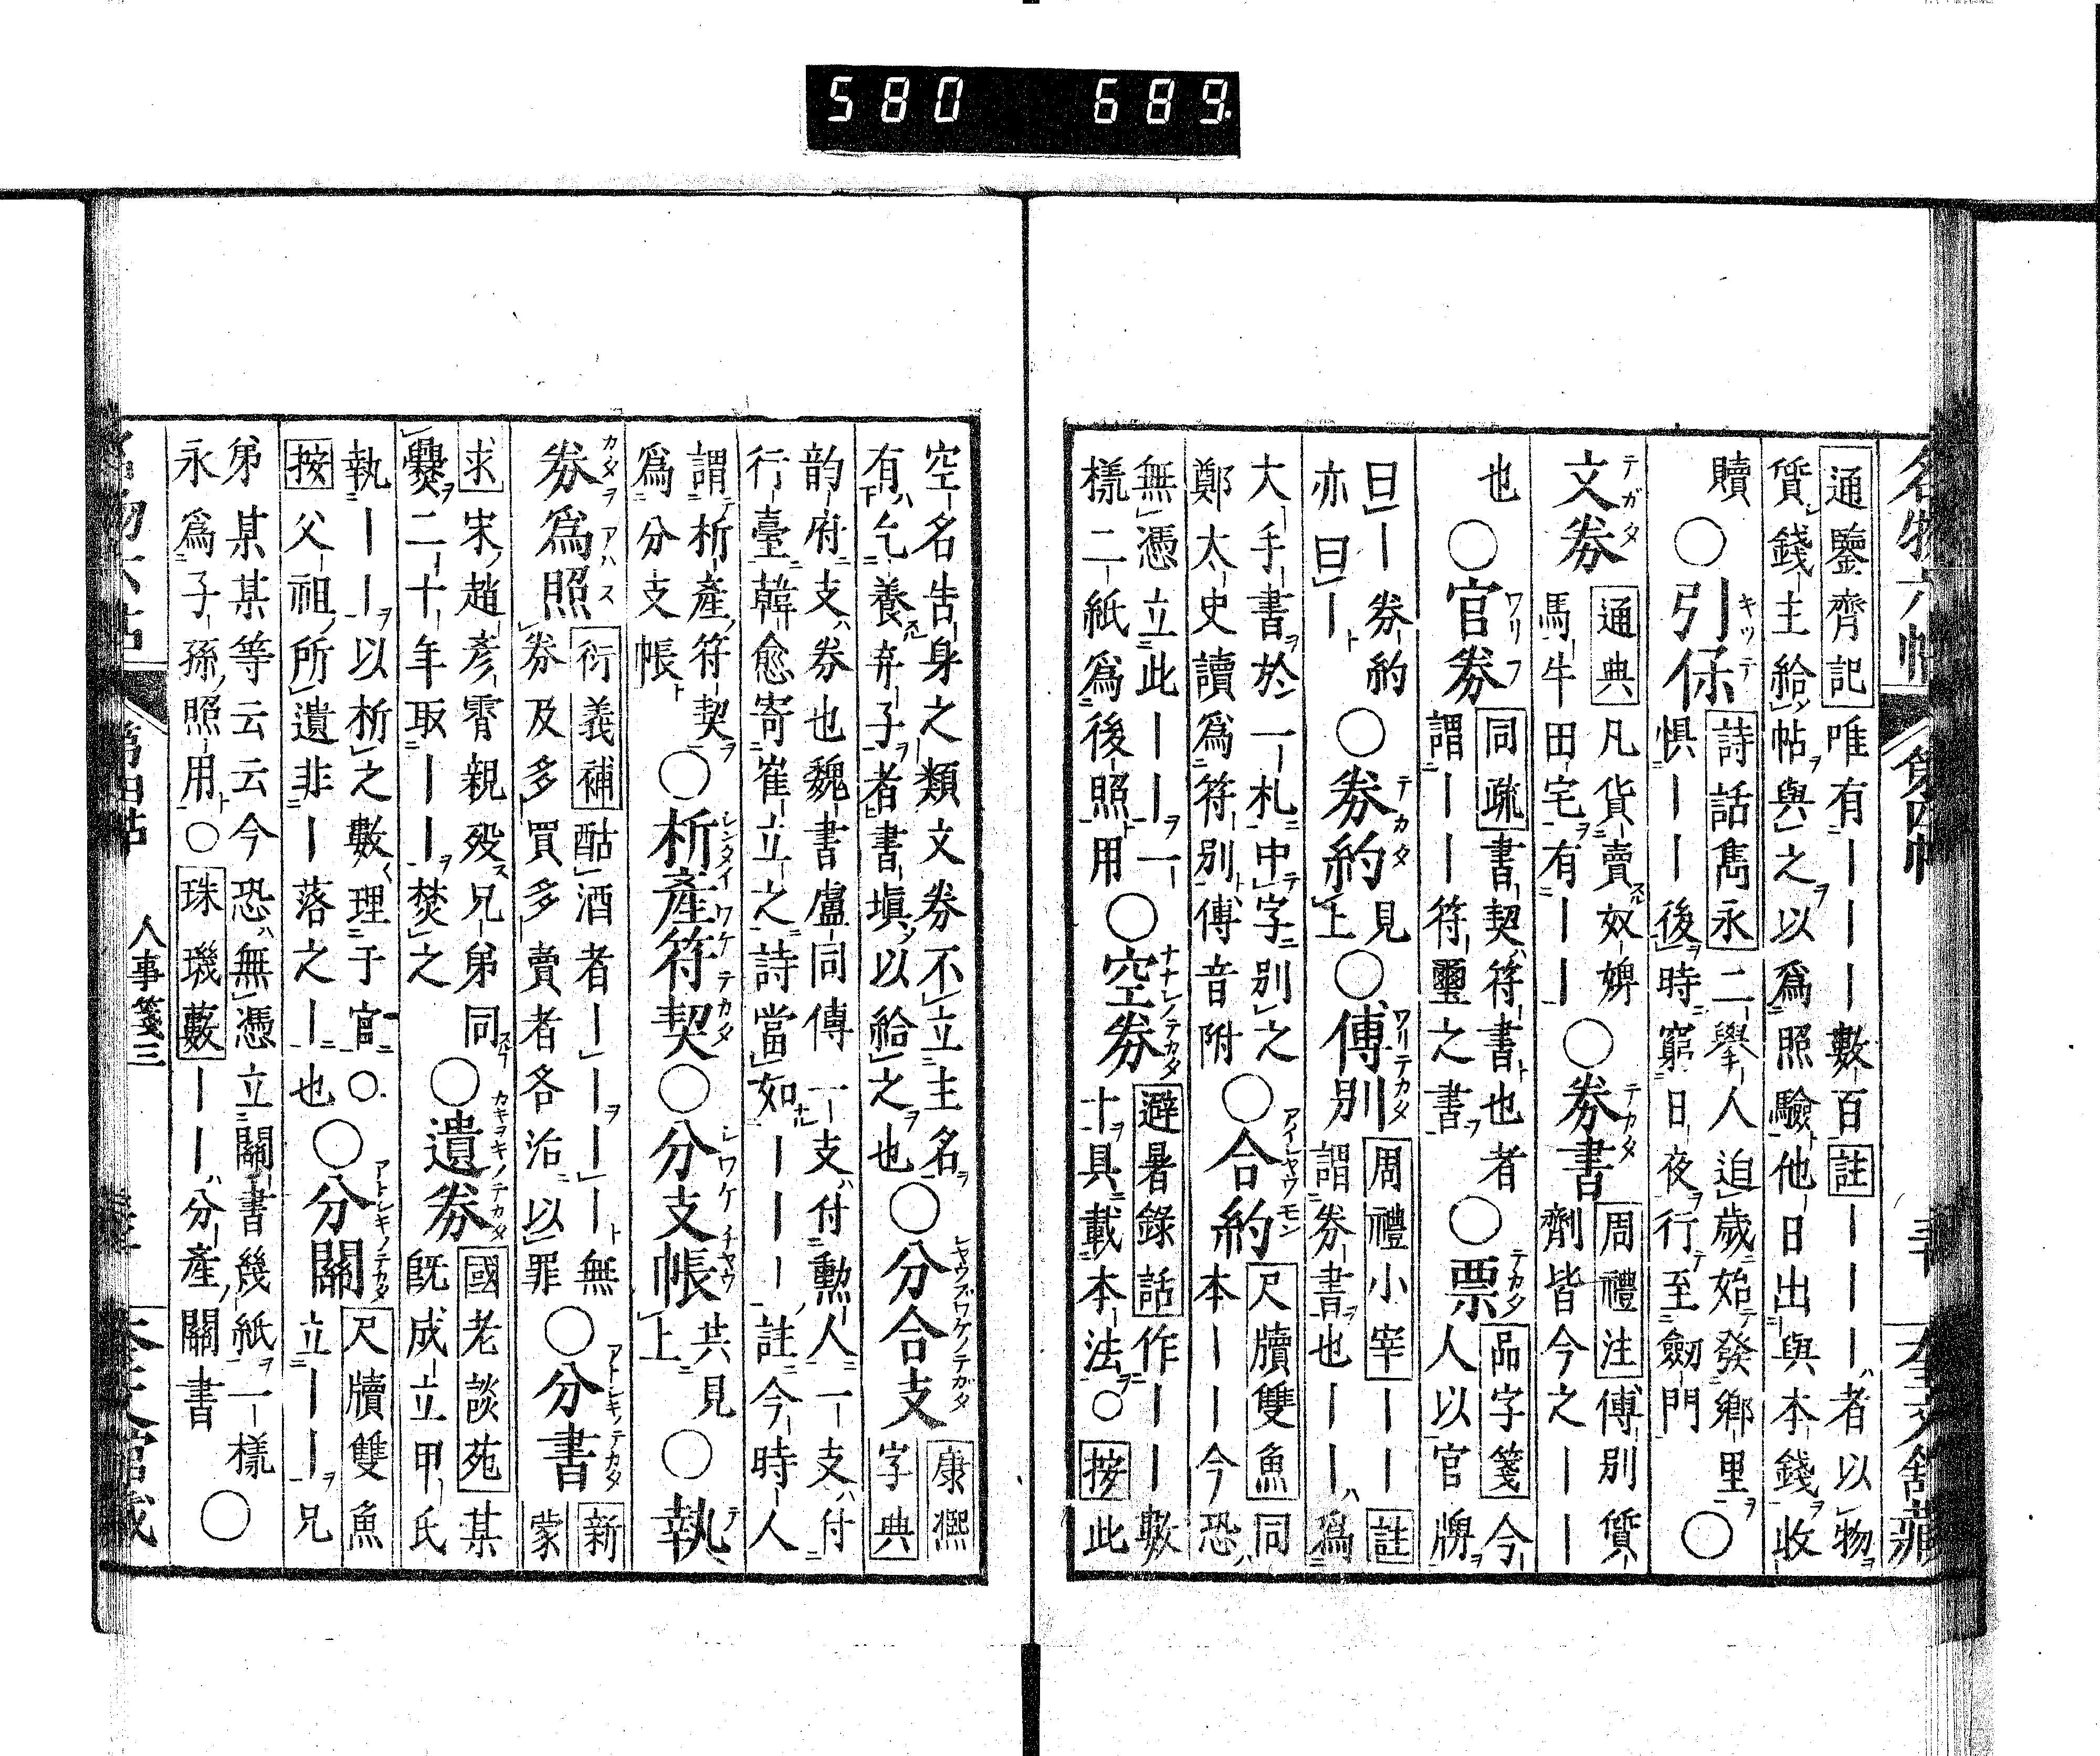 580 689
通鑒齊記唯有｜｜｜數百註｜｜｜｜者以物
貲錢主給帖與之以爲照驗他日出與本錢收
贖○引保詩話雋永二舉人迫歲始發鄉里
懼｜｜後時窮日夜行至劒門○
文券通典凡貨賣奴婢
馬牛田宅有｜｜○券書周禮注傅別質
劑皆今之｜｜
也○官券同疏書契符書也者
謂｜｜符璽之書○票品字箋今
人以官牌
曰｜券約
亦曰｜○券約見
上○傅別周禮小宰｜｜註
謂券書也｜｜爲
大手書於一札中字別之
鄭大史讀爲符別傅音附○合約尺牘雙魚同
本｜｜今恐
無憑立此｜｜一
樣二紙爲後照用○空券避暑錄話作｜｜數
十具載本法○按此
空名告身之類文券不立主名
有乞養弃子者書塡以給之也○分合支康熙
字典
韵府支券也魏書盧同傳一支付勳人一支付
行臺韓愈寄崔立之詩當如｜｜｜註今時人
謂析產符契
爲分支帳○析產符契○分支帳共見
上○執
券爲照衍義補酤酒者｜｜｜無
券及多買多賣者各治以罪○分書新
蒙
求宋趙彥霄親歿兄弟同
爨二十年取｜｜焚之○遺券國老談苑某
旣成立甲氏
執｜｜以析之數理于官○
按父祖所遺非｜落之｜也○分關尺牘雙魚
立｜｜兄
弟某某等云云今恐無憑立關書幾紙一樣
永爲子孫照用○珠璣藪｜｜分產關書○
人事箋三